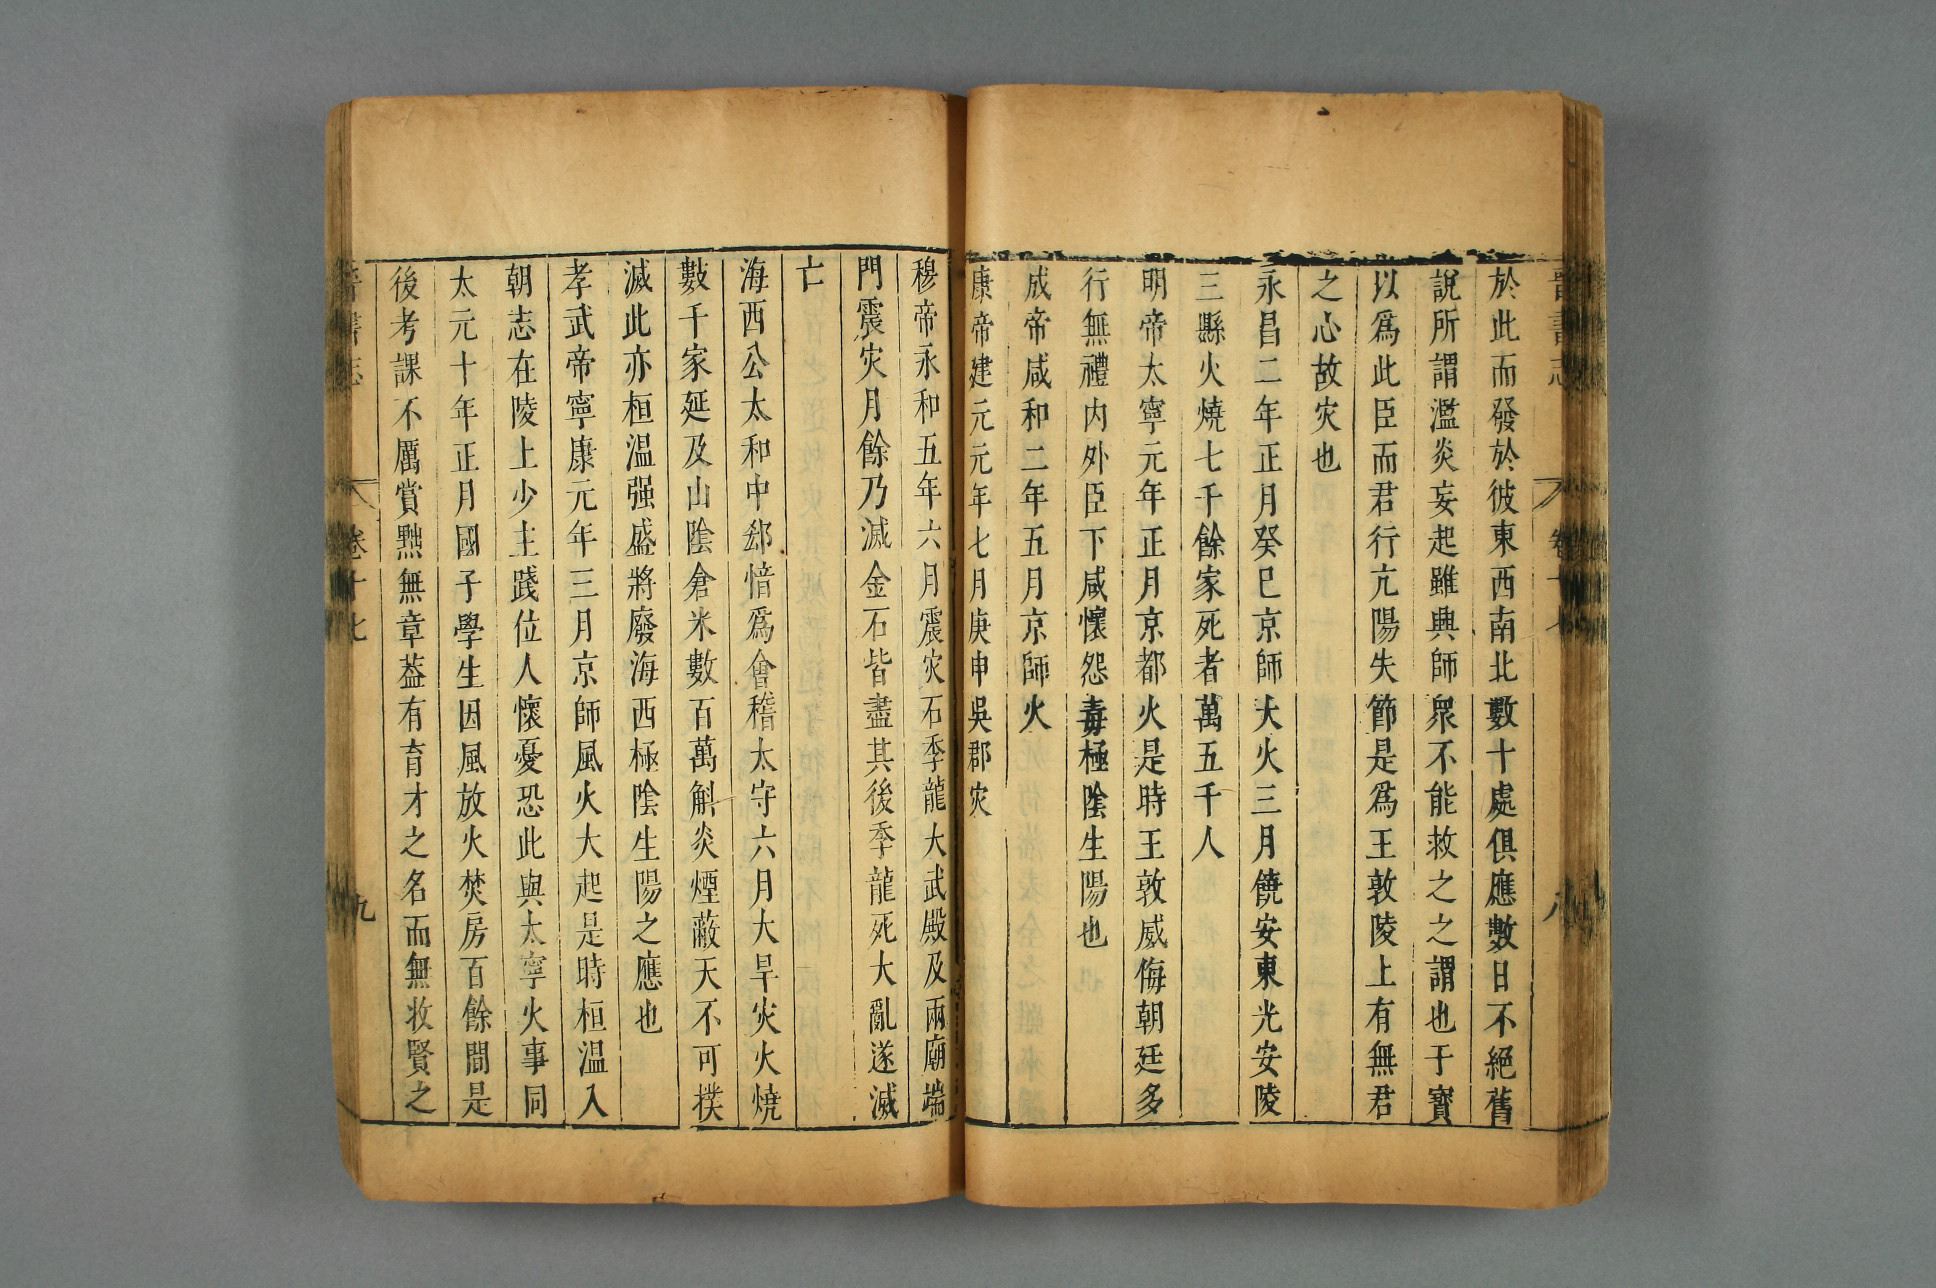 晉書志 卷十七 八
於此而發於彼東西南北數十處俱應數日不絕舊
說所謂濫炎妄起雖興師衆不能救之之謂也干寶
以爲此臣而君行亢陽失節是爲王敦陵上有無君
之心故灾也
永昌二年正月癸巳京師大火三月饒安東光安陵
三縣火燒七千餘家死者萬五千人
明帝太寧元年正月京都火是時王敦威侮朝廷多
行無禮內外臣下咸懷怨毒極陰生陽也
成帝咸和二年五月京師火
康帝建元元年七月庚申吳郡灾
穆帝永和五年六月震灾石季龍大武殿及兩廟端
門震灾月餘乃滅金石皆盡其後季龍死大亂遂滅
亡
海西公太和中郄愔爲會稽太守六月大旱灾火燒
數千家延及山陰倉米數百萬斛炎煙蔽天不可撲
滅此亦桓溫强盛將廢海西極陰生陽之應也
孝武帝寧康元年三月京師風火大起是時桓溫入
朝志在陵上少主踐位人懷憂恐此與太寧火事同
太元十年正月國子學生因風放火焚房百餘間是
後考課不厲賞黜無章蓋有育才之名而無收賢之
晉書志 卷十七 九